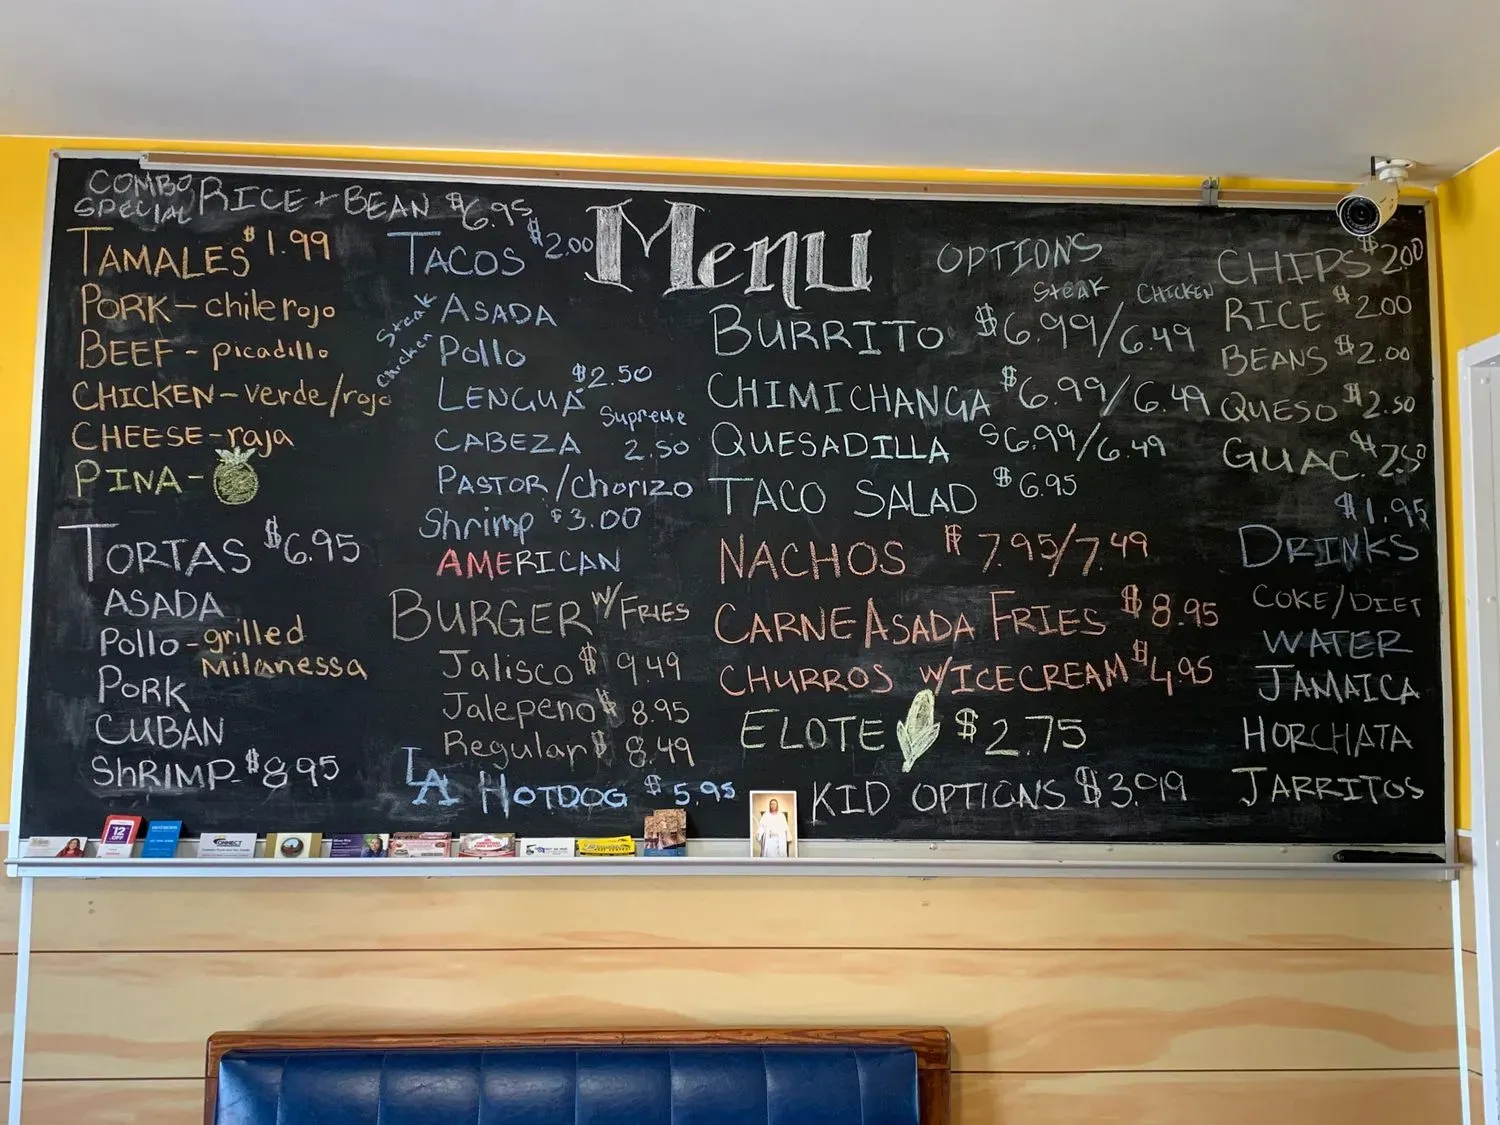 COMBO SPECIAL RICE + BEAN $6.95
TAMALES $1.99
PORK - chile rojo
BEEF - picadillo
CHICKEN - verde/rojo
CHEESE - raja
PINA -
TORTAS $6.95
ASADA
Pollo - grilled
Milanessa
PORK
CUBAN
SHRIMP $8.95
TACOS $2.00
Steak ASADA
Chicken Pollo
LENGUA $2.50
Supreme
CABEZA 2.50
PASTOR/Chorizo
Shrimp $3.00
AMERICAN
BURGER W/ FRIES
Jalisco $9.49
Jalepeno $8.95
Regular $8.49
LA HOTDOG $5.95
Menu
OPTIONS
Steak CHICKEN
BURRITO $6.99/6.49
CHIMICHANGA $6.99/6.49
QUESADILLA $6.99/6.49
TACO SALAD $6.95
NACHOS $7.95/7.49
CARNE ASADA FRIES $8.95
CHURROS W/ICECREAM $4.95
ELOTE $2.75
KID OPTIONS $3.99
CHIPS $2.00
RICE $2.00
BEANS $2.00
QUESO $2.50
GUAC. $2.50
$1.95
DRINKS
COKE/DIET
WATER
JAMAICA
HORCHATA
JARRITOS
$12
OFF
CONNECT